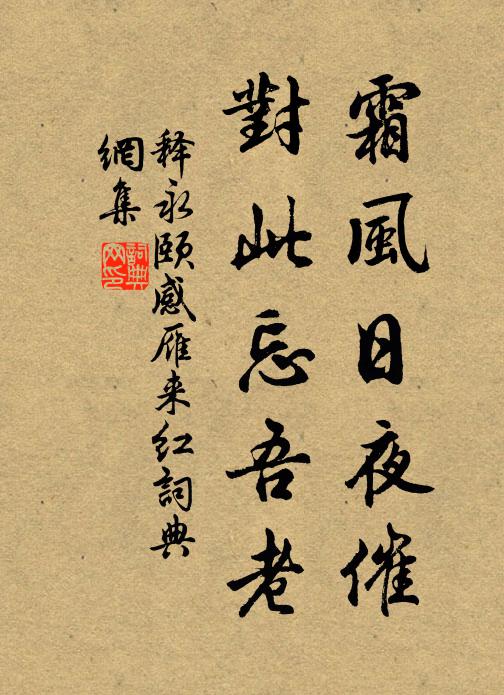 霜風日夜催
對此忘吾老
释永颐感雁来红詞典
網集
詞典網印